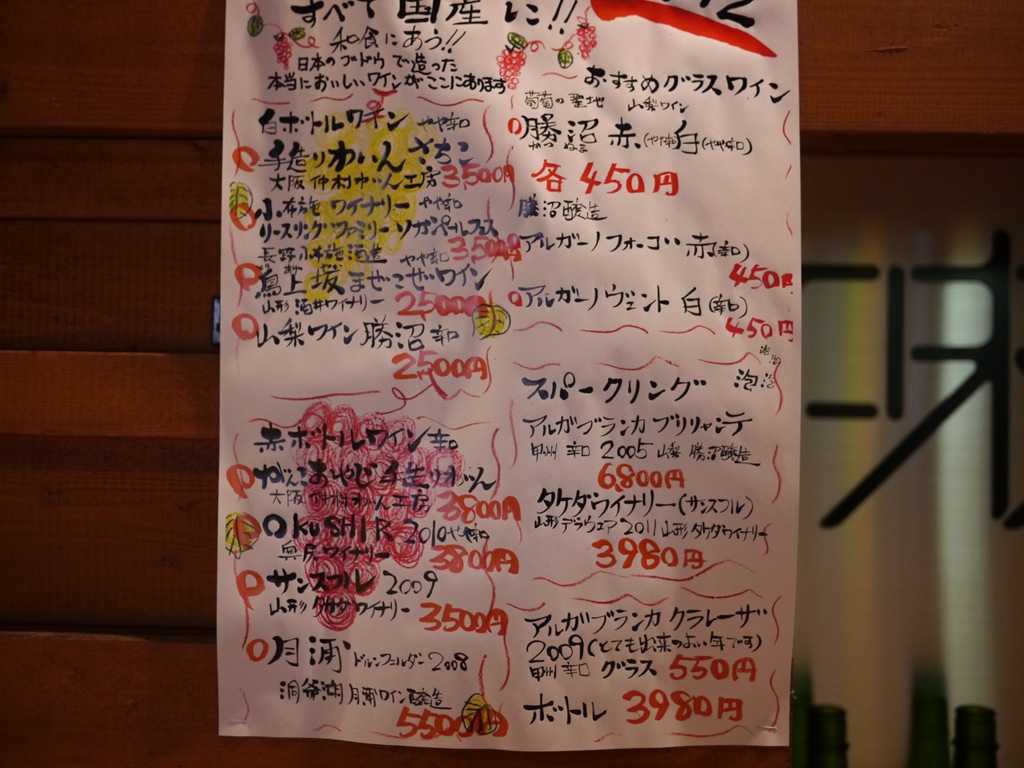 すべて国産に!!
和食にあう!!
日本のブドウで造った
本当においしいワインがここにあります
白ボトルワイン やや辛口
手造りわいん さちこ
大阪 仲村わいん工房 3,500円
小布施ワイナリー やや辛口
リースリング ファミリーソガ
長野 小布施酒造 やや辛口 3,500円
鳥上坂 まぜこぜワイン
山形 酒井ワイナリー 2500円
山梨ワイン 勝沼 辛口
2500円
赤ボトルワイン 辛口
がんこおやじ手造りわいん
大阪 仲村わいん工房 3800円
OKUSHIR 2010 やや辛口
奥尻ワイナリー 3800円
サンスフル 2009
山形 タケダワイナリー 3500円
月浦 ドルンフェルダー 2008
洞爺湖月浦ワイン醸造
5500円
おすすめグラスワイン
葡萄の聖地 山梨ワイン
勝沼 赤、白(やや辛口)
かつ ぬま
各450円
勝沼醸造
アルガーノフォーゴ 赤(辛口)
450円
アルガーノヴェント 白(辛口)
450円
スパークリング 泡泡
アルガブランカ ブリリャンテ
甲州 辛口 2005 山梨 勝沼醸造
6800円
タケダワイナリー(サンスフル)
山形デラウエア 2011 山形 タケダワイナリー
3980円
アルガブランカ クラレーザ
2009(とても出来のよい年です)
甲州 辛口 グラス 550円
ボトル 3980円